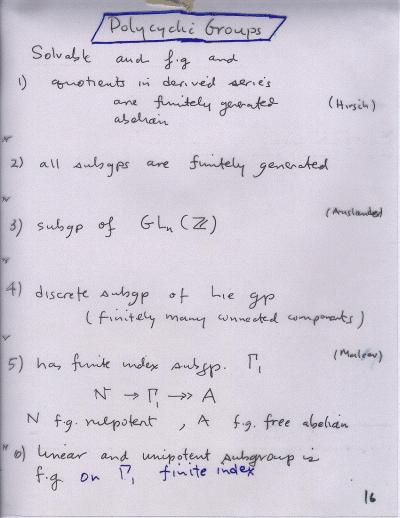 Polycyclic Groups
Solvable and f.g and
1) quotients in derived series
are finitely generated
abelian (Hirsch)
2) all subgps are finitely generated
(Auslander)
3) subgp of GLn(ℤ)
4) discrete subgp of Lie gp
(finitely many connected components)
5) has finite index subgp. Γ₁ (Malcev)
N → Γ₁ →> A
N f.g. nilpotent , A f.g. free abelian
6) linear and unipotent subgroup is
f.g. on Γ₁ finite index
16